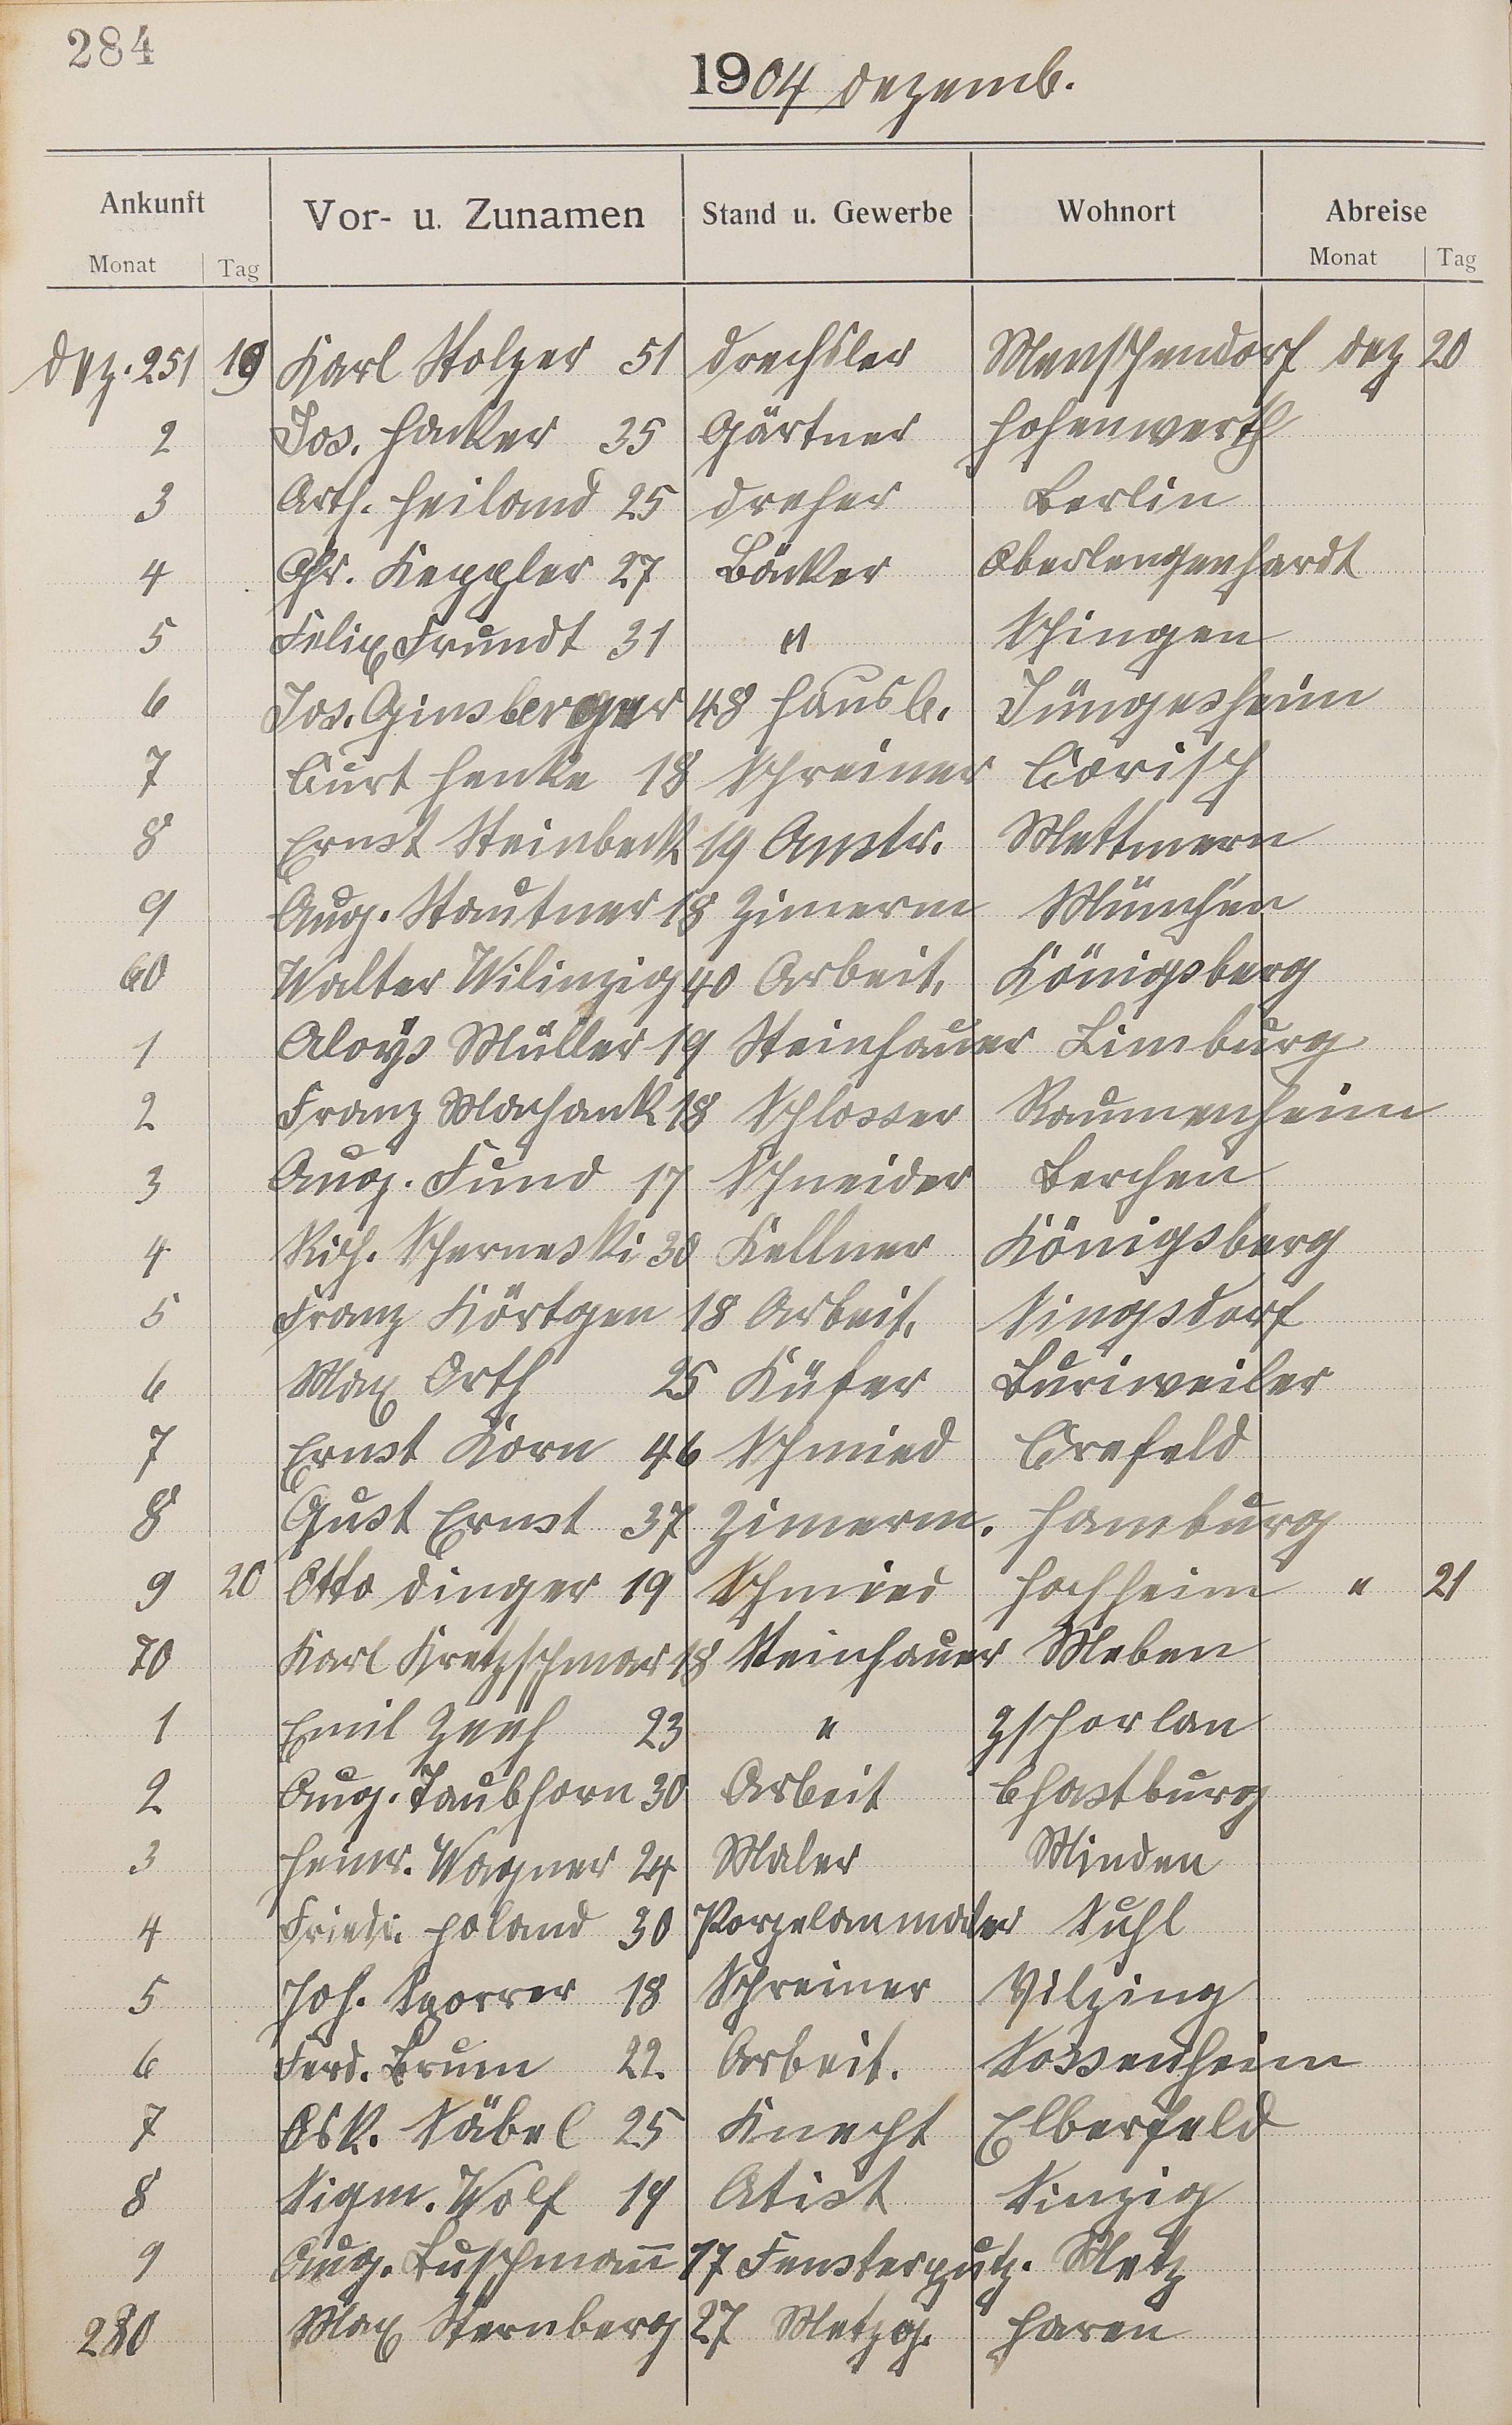 284
1904 Dezemb.
Ankunft Vor- u. Zunamen Stand u. Gewerbe Wohnort Abreise
Monat Tag Monat Tag
Dez. 251 19 Karl Stolzer 51 Drechsler Menschendorf Dez 20
2 Jos. Hacker 35 Gärtner Hohenwerth
3 Arth. Heiland 25 Dreher Berlin
4 Chr. Keppler 27 Bäcker Oberlengenhardt
5 Felix Frundt 31 " Schingen
6 Jos. Ginsberger 48 Hausb. Jüngesheim
7 Curt Henke 18 Schreiner Corisch
8 Ernst Steinbeck 19 Anstr. Mettmern
9 Aug. Stautner 18 Zimerm München
60 Walter Wilinzig 40 Arbeit. Königsberg
1 Aloÿs Müller 19 Steinhauer Limburg
2 Franz Machank 18 Schlosser Raumenheim
3 Aug. Fund 17 Schneider Berchen
4 Rich. Scherneski 30 Kellner Königsberg
5 Franz Körtgen 18 Arbeit. Singsdorf
6 Max Orth 25 Küfer Buriweiler
7 Ernst Korn 46 Schmied Crefeld
8 Gust Ernst 37 Zimerm. Hamburg
9 20 Otto Dinger 19 Schmied Hochheim " 21
70 Karl Kretzschmar 18 Steinhauer Meben
1 Emil Zech 23 " Zschorlau
2 Aug. Taubhorn 30 Arbeit Chastburg
3 Heinr. Wagner 24 Maler Minden
4 Friedr. Holand 30 Porzelanmaler Suhl
5 Joh. Sporrer 18 Schreiner Vilzing
6 Ferd. Brum 22 Arbeit. Sossenheim
7 Osk. Säbel 25 Knecht Elberfeld
8 Sigm. Wolf 19 Atist Sinzig
9 Aug. Buschmann 17 Fensterputz. Metz
280 Max Sternberg 27 Metzg. Haren